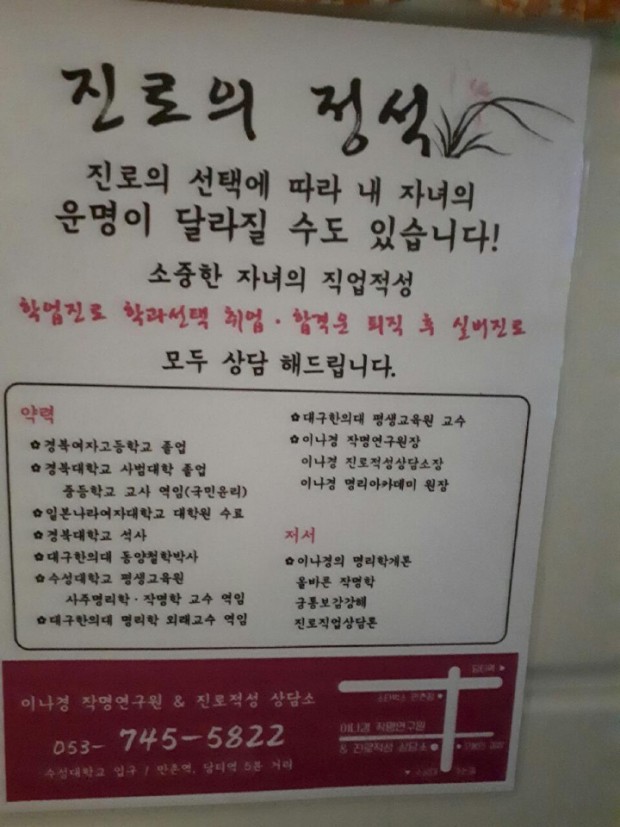 진로의 정석
진로의 선택에 따라 내 자녀의
운명이 달라질 수도 있습니다!
소중한 자녀의 직업적성
학업진로 학과선택 취업 · 합격운 퇴직 후 실버진로
모두 상담 해드립니다.
약력
✿경북여자고등학교 졸업
✿경북대학교 사범대학 졸업
중등학교 교사 역임(국민윤리)
✿일본나라여자대학교 대학원 수료
✿경북대학교 석사
✿대구한의대 동양철학박사
✿수성대학교 평생교육원
사주명리학 · 작명학 교수 역임
✿대구한의대 명리학 외래교수 역임
✿대구한의대 평생교육원 교수
✿이나경 작명연구원장
이나경 진로적성상담소장
이나경 명리아카데미 원장
저서
✿이나경의 명리학개론
올바른 작명학
궁통보감강해
진로직업상담론
이나경 작명연구원 & 진로적성 상담소
053- 745-5822
수성대학교 입구 / 만촌역, 담티역 5분 거리
담티역
이나경 작명연구원
& 진로적성 상담소